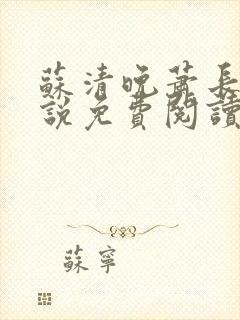 蘇清晚蕭長
說免費閱讀
蘇寧